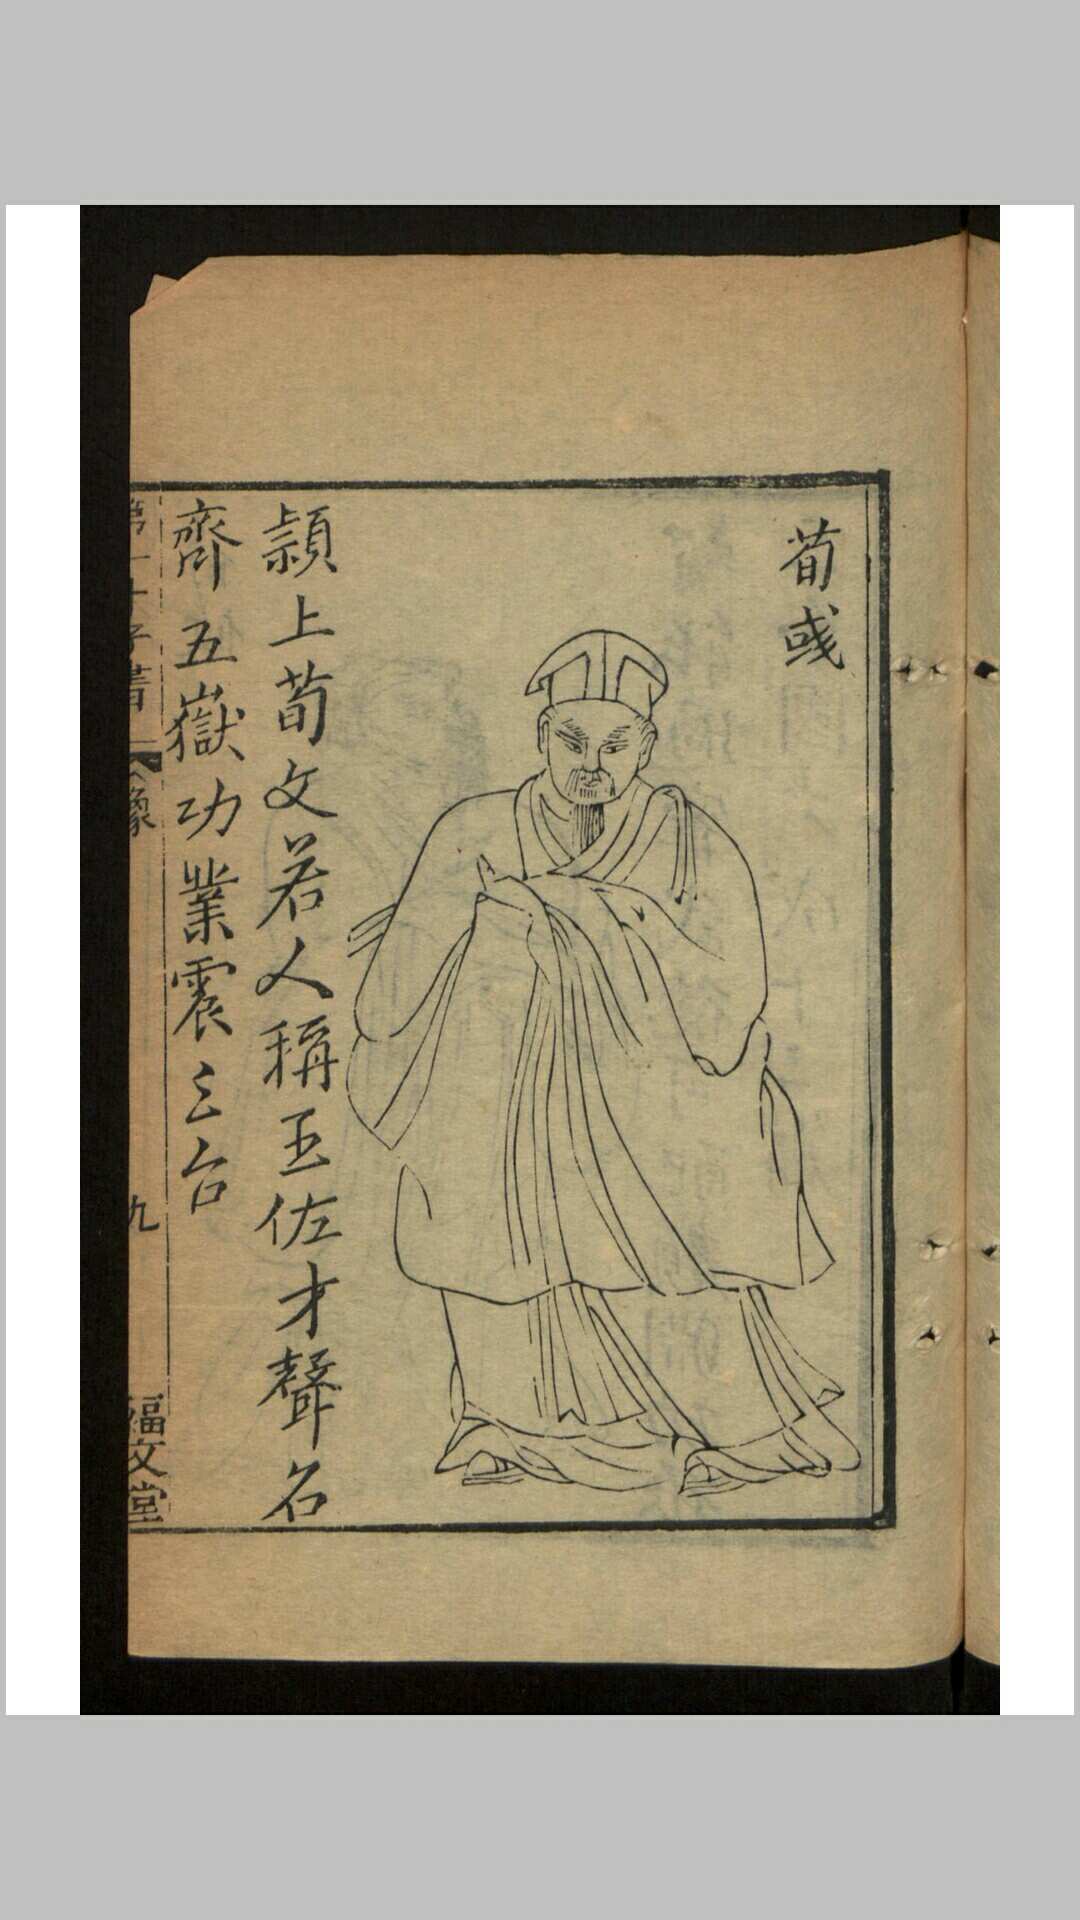 荀彧
頴上荀文若人稱王佐才聲名
齊五嶽功業震三台
第一才子書
像
九
福文堂